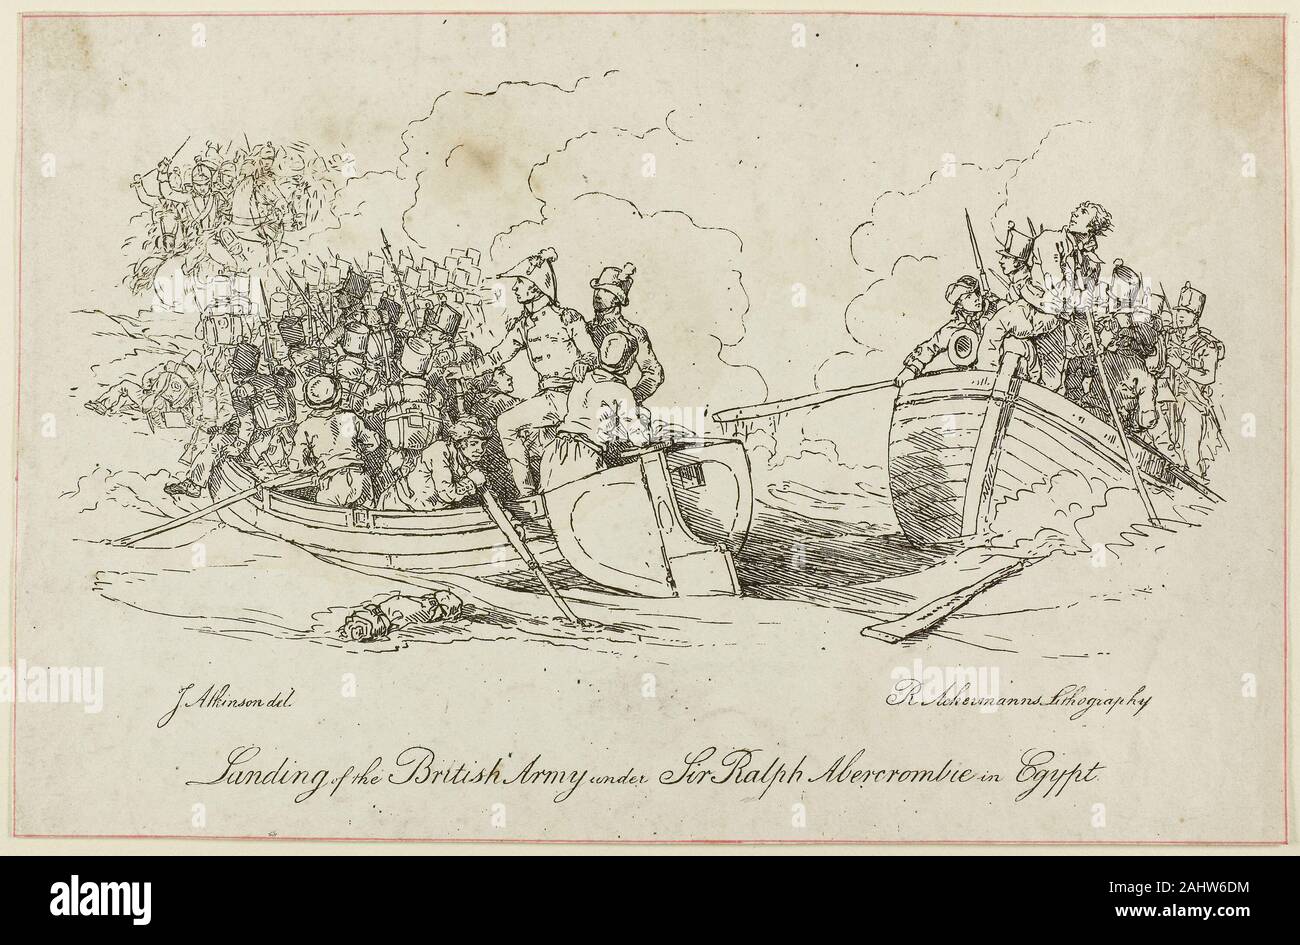 J Atkinson del.
R. Ackermanns Lithography
Landing of the British Army under Sir Ralph Abercrombie in Egypt.
a
alamy
Image ID: 2AHW6DM
www.alamy.com